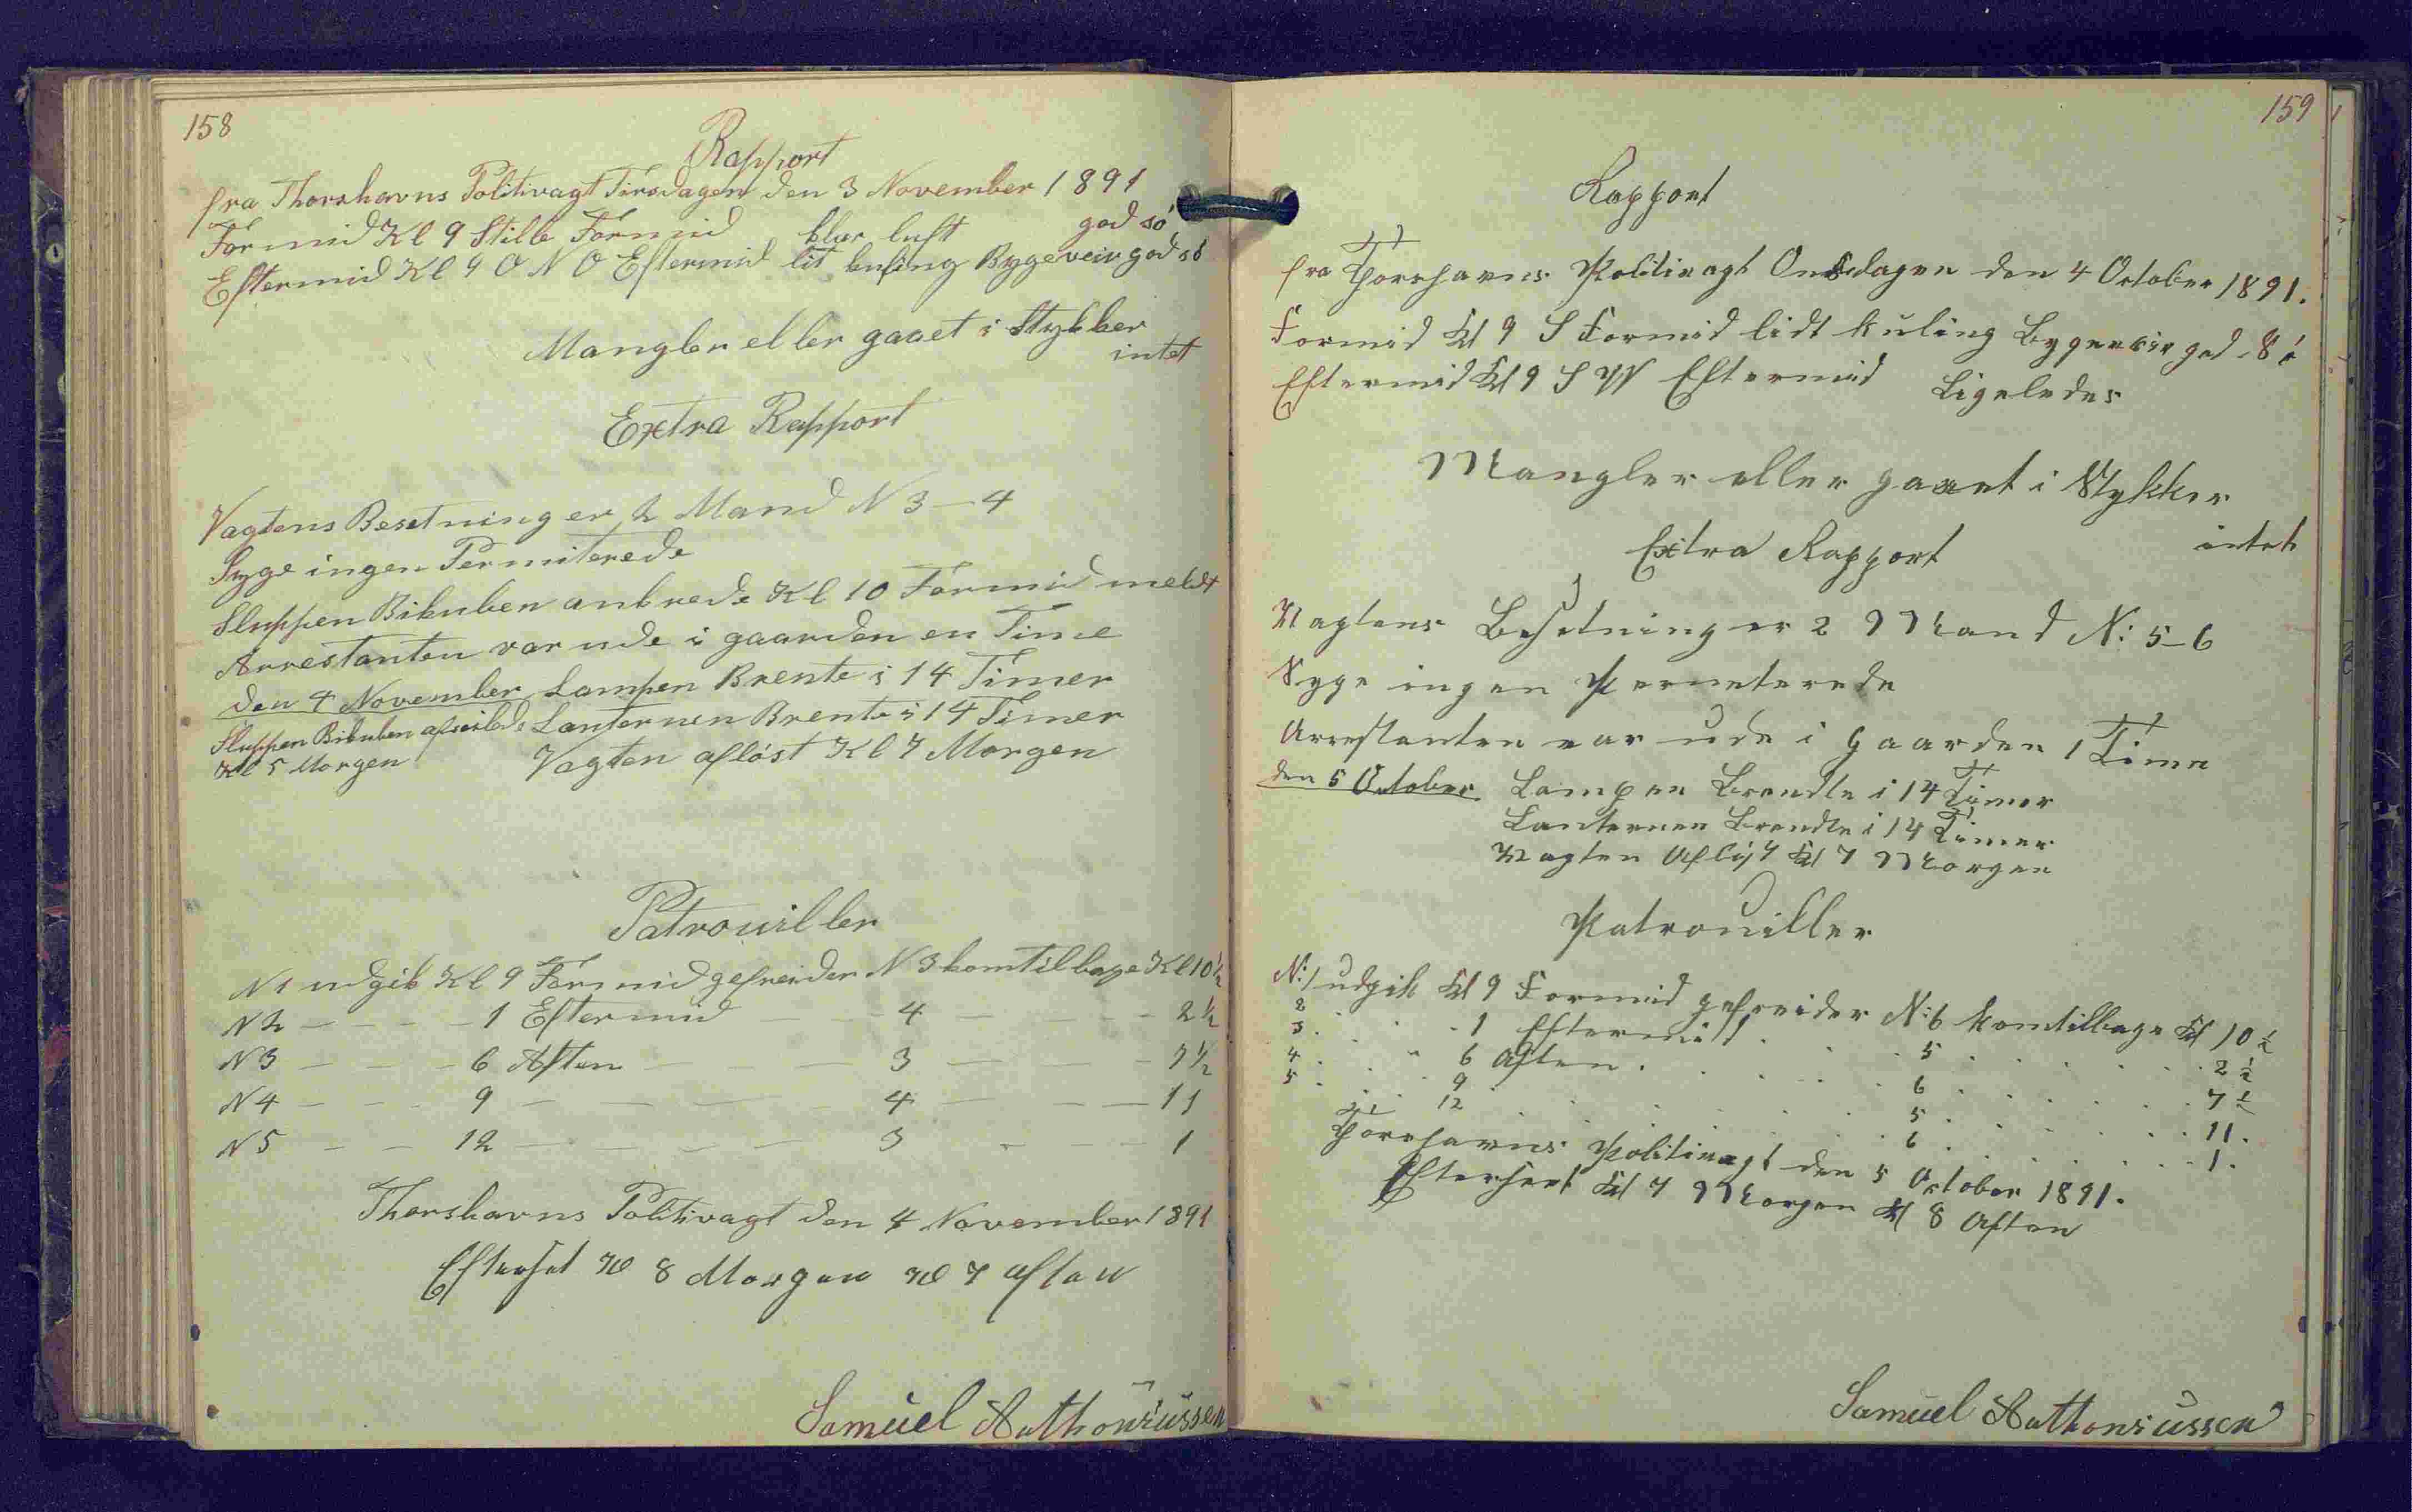 158
Rapport
fra Thorshavns Politivagt Tirsdagen den 3 November 1891
Formid Kl 9 Stille Formid klar luft god só
Eftermid Kl 9 O N O Eftermid lit kuling Bygeveir god só
Mangler eller gaaet i Stykker
intet
Extra Rapport
Vagtens Besetning er 2 Mand N 3 – 4
Syge ingen Permiterede
Sluppen Bikuben ankrede Kl 10 Formid meldt
Arrestanten var ude i gaarden en Time
den 4 November Lampen Brente i 14 Timer
Sluppen Bikuben afseilede Lanternen Brente i 14 Timer
Kl 5 Morgen Vagten aflóst Kl 7 Morgen
Patrouiller
N 1 udgik Kl 9 Formid gefreider N 3 kom tilbage Kl 10 ½
N 2 – – – – 1 Eftermid – – 4 – – – 2 ½
N 3 – – – 6 Aften – – – 3 – – – 7 ½
N 4 – – – 9 – – – – 4 – – – 11
N 5 – – 12 – – – – 3 – – – 1
Thorshavns Politivagt den 4 November 1891
Efterset Kl 8 Morgen Kl 7 aften
Samuel Anthoniussen
159
Rapport
fra Thorshavns Politivagt Onsdagen den 4 October 1891.
Formid Kl 9 S Formid lidt kuling Bygeveir god Só
Eftermid Kl 9 S W Eftermid Ligeledes
Mangler eller gaaet i Stykker
intet
Extra Rapport
Vagtens Besetning er 2 Mand N: 5–6
Syge ingen Permeterede
Arrestanten var ude i Gaarden 1 Time
den 5 October Lampen Brendte i 14 Timer
Lanternen Brendte i 14 Timer
Vagten Aflóst Kl 7 Morgen
Patrouiller
N: 1 udgik Kl 9 Formid gefreider N: 6 kom tilbage Kl 10 ½
2 . . . 1 Eftermid . . . 5 . . . 2 ½
3 . . . 6 Aften . . . 6 . . . 7 ½
4 . . . 9 . . . 5 . . . 11.
5 . . . 12 . . . 6 . . . 1.
Thorshavns Politivagt den 5 October 1891.
Efterseet Kl 7 Morgen Kl 8 Aften
Samuel Anthoniussen